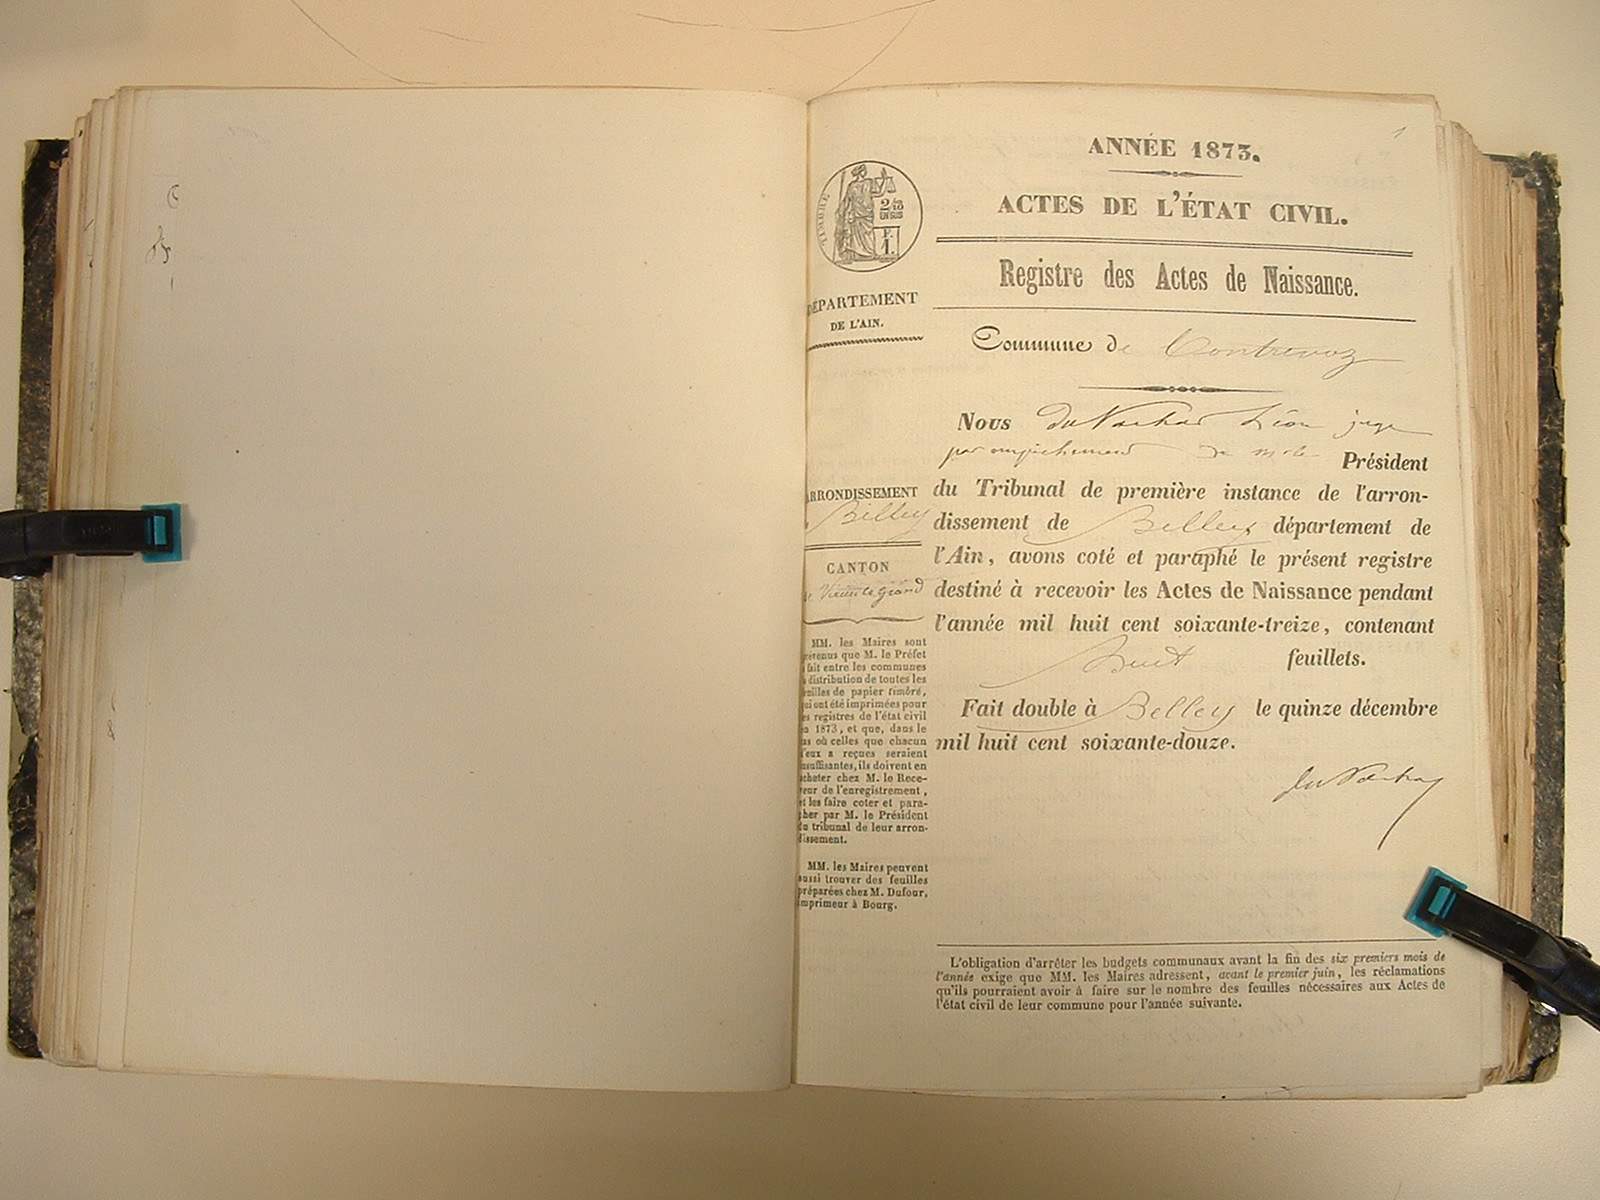 1
ANNÉE 1873.
ACTES DE L'ÉTAT CIVIL.
Registre des Actes de Naissance.
Commune de Contrevoz
TIMBRE
2/10
EN SUS
F.
1.
DÉPARTEMENT
DE L'AIN.
ARRONDISSEMENT
Belley
CANTON
de Virieu le grand
MM. les Maires sont
prévenus que M. le Préfet
fait entre les communes
distribution de toutes les
feuilles de papier timbré,
qui ont été imprimées pour
les registres de l'état civil
1873, et que, dans le
cas où celles que chacun
d'eux a reçues seraient
insuffisantes, ils doivent en
acheter chez M. le Rece-
veur de l'enregistrement,
et les faire coter et para-
pher par M. le Président
du tribunal de leur arron-
dissement.
MM. les Maires peuvent
aussi trouver des feuilles
préparées chez M. Dufour,
imprimeur à Bourg.
Nous Léon juge
par empêchement de Président
du Tribunal de première instance de l'arron-
dissement de Belley département de
l'Ain, avons coté et paraphé le présent registre
destiné à recevoir les Actes de Naissance pendant
l'année mil huit cent soixante-treize, contenant
huit feuillets.
Fait double à Belley le quinze décembre
mil huit cent soixante-douze.
L'obligation d'arrêter les budgets communaux avant la fin des six premiers mois de
l'année exige que MM. les Maires adressent, avant le premier juin, les réclamations
qu'ils pourraient avoir à faire sur le nombre des feuilles nécessaires aux Actes de
l'état civil de leur commune pour l'année suivante.